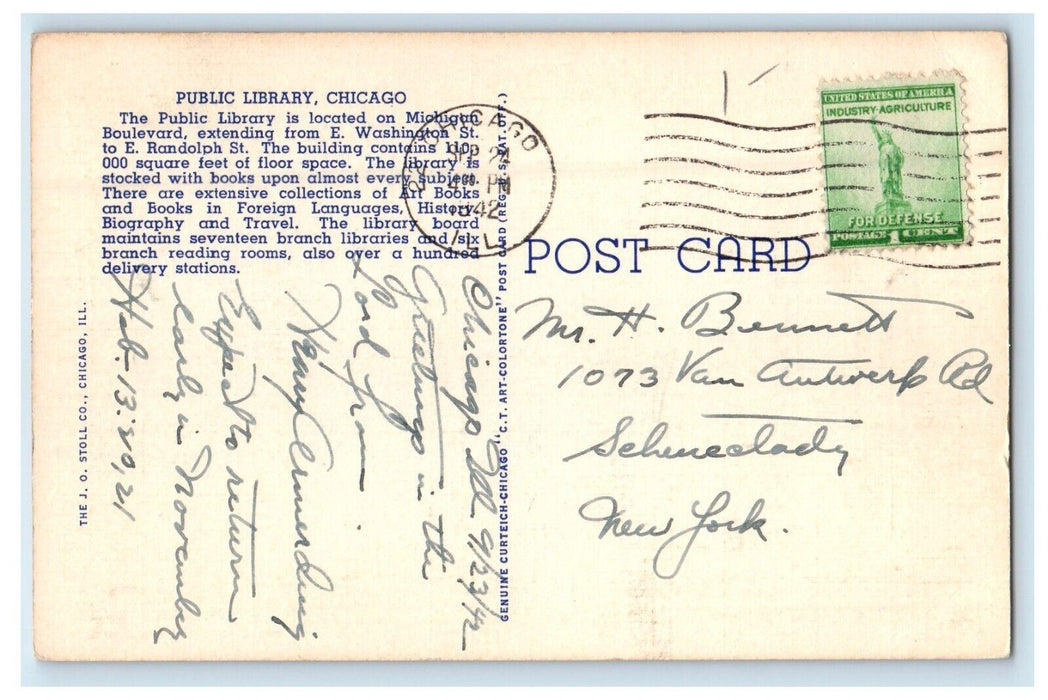 PUBLIC LIBRARY, CHICAGO
The Public Library is located on Michigan
Boulevard, extending from E. Washington St.
to E. Randolph St. The building contains 110,-
000 square feet of floor space. The library is
stocked with books upon almost every subject.
There are extensive collections of Art Books
and Books in Foreign Languages, History,
Biography and Travel. The library board
maintains seventeen branch libraries and six
branch reading rooms, also over a hundred
delivery stations.
Chicago Ill 9/23/42
Greetings in the
Lord from
Expect to return
early in November
Heb. 13:20,21
THE J. O. STOLL CO., CHICAGO, ILL.
GENUINE CURTEICH-CHICAGO "C. T. ART-COLORTONE" POST CARD (REG. U. S. PAT. OFF.)
CHICAGO
SEP 24
4 PM
1942
ILL.
UNITED STATES OF AMERICA
INDUSTRY·AGRICULTURE
FOR DEFENSE
POSTAGE 1 CENT
POST CARD
Mr. H. Bennett
1073 Van Antwerp Rd
Schenectady
New York.